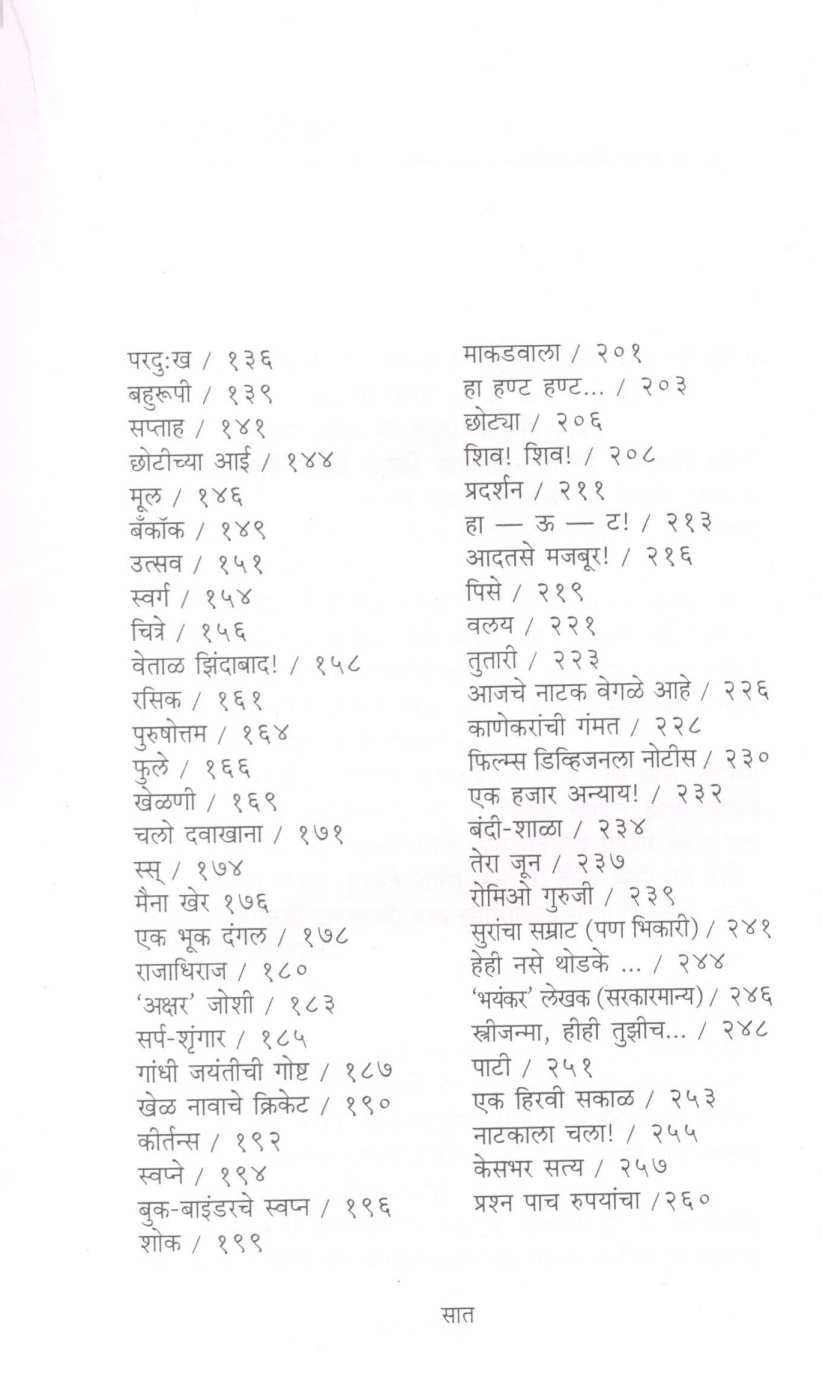 परदुःख / १३६
बहुरूपी / १३९
सप्ताह / १४१
छोटीच्या आई / १४४
मूल / १४६
बँकॉक / १४९
उत्सव / १५१
स्वर्ग / १५४
चित्रे / १५६
वेताळ झिंदाबाद! / १५८
रसिक / १६१
पुरुषोत्तम / १६४
फुले / १६६
खेळणी / १६९
चलो दवाखाना / १७१
स्स् / १७४
मैना खेर १७६
एक भूक दंगल / १७८
राजाधिराज / १८०
‘अक्षर’ जोशी / १८३
सर्प-शृंगार / १८५
गांधी जयंतीची गोष्ट / १८७
खेळ नावाचे क्रिकेट / १९०
कीर्तन्स / १९२
स्वप्ने / १९४
बुक-बाइंडरचे स्वप्न / १९६
शोक / १९९
माकडवाला / २०१
हा हण्ट हण्ट... / २०३
छोट्या / २०६
शिव! शिव! / २०८
प्रदर्शन / २११
हा — ऊ — ट! / २१३
आदतसे मजबूर! / २१६
पिसे / २१९
वलय / २२१
तुतारी / २२३
आजचे नाटक वेगळे आहे / २२६
काणेकरांची गंमत / २२८
फिल्म्स डिव्हिजनला नोटीस / २३०
एक हजार अन्याय! / २३२
बंदी-शाळा / २३४
तेरा जून / २३७
रोमिओ गुरुजी / २३९
सुरांचा सम्राट (पण भिकारी) / २४१
हेही नसे थोडके ... / २४४
‘भयंकर’ लेखक (सरकारमान्य) / २४६
स्त्रीजन्मा, हीही तुझीच... / २४८
पाटी / २५१
एक हिरवी सकाळ / २५३
नाटकाला चला! / २५५
केसभर सत्य / २५७
प्रश्न पाच रुपयांचा /२६०
सात